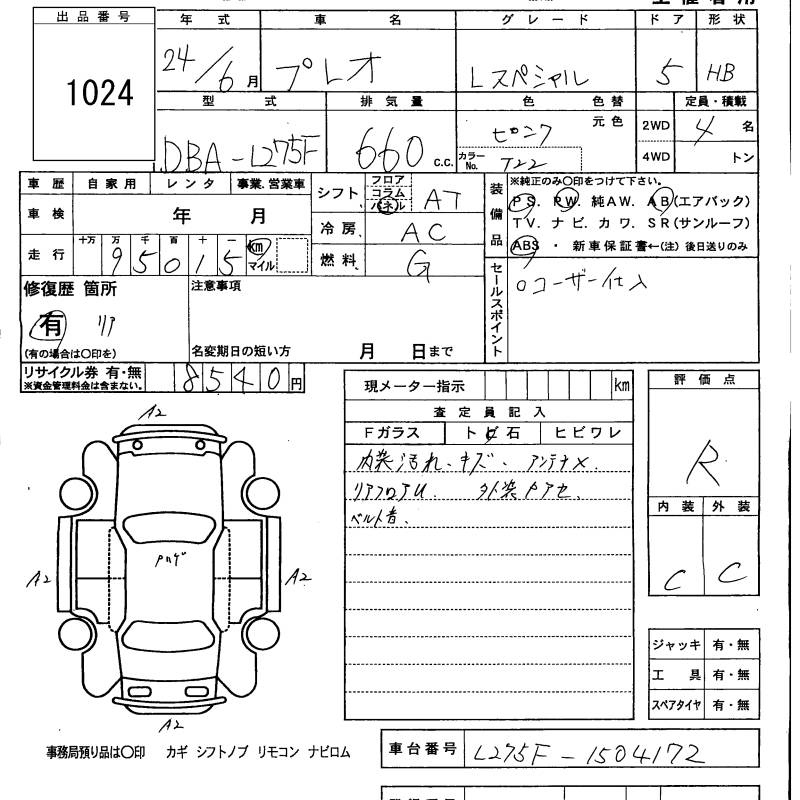 出品番号 年式 車名 グレード ドア 形状
1024 24/6月 プレオ Lスペシャル 5 HB
型式 排気量 色 色替 定員・積載
DBA-L275F 660 c.c. ピンク 元色 2WD 4名
カラーNo. T22 4WD トン
車歴 自家用 レンタ 事業.営業車
車検 年 月
走行 十万 万 千 百 十 一
95015 km マイル
シフト フロア コラム パネル AT
冷房 AC
燃料 G
装備品 ※純正のみ〇印をつけて下さい。
PS. PW. 純AW. AB(エアバック)
TV. ナビ. カワ. SR(サンルーフ)
ABS ・ 新車保証書←(注) 後日送りのみ
セールスポイント
ユーザー仕入
修復歴 箇所
有 リア
(有の場合は〇印を)
注意事項
名変期日の短い方 月 日まで
リサイクル券 有・無 8540円
※資金管理料金は含まない。
現メーター指示 km
査定員記入
Fガラス ト ビ 石 ヒビワレ
内装汚れ、キズ、 アンテナ×
リアフロアU 外装Pアセ
ベルト音、
評価点
R
内装 外装
C C
ジャッキ 有・無
工具 有・無
スペアタイヤ 有・無
A2
Pハゲ
A2 A2
A2
事務局預り品は〇印 カギ シフトノブ リモコン ナビロム
車台番号 L275F-1504172